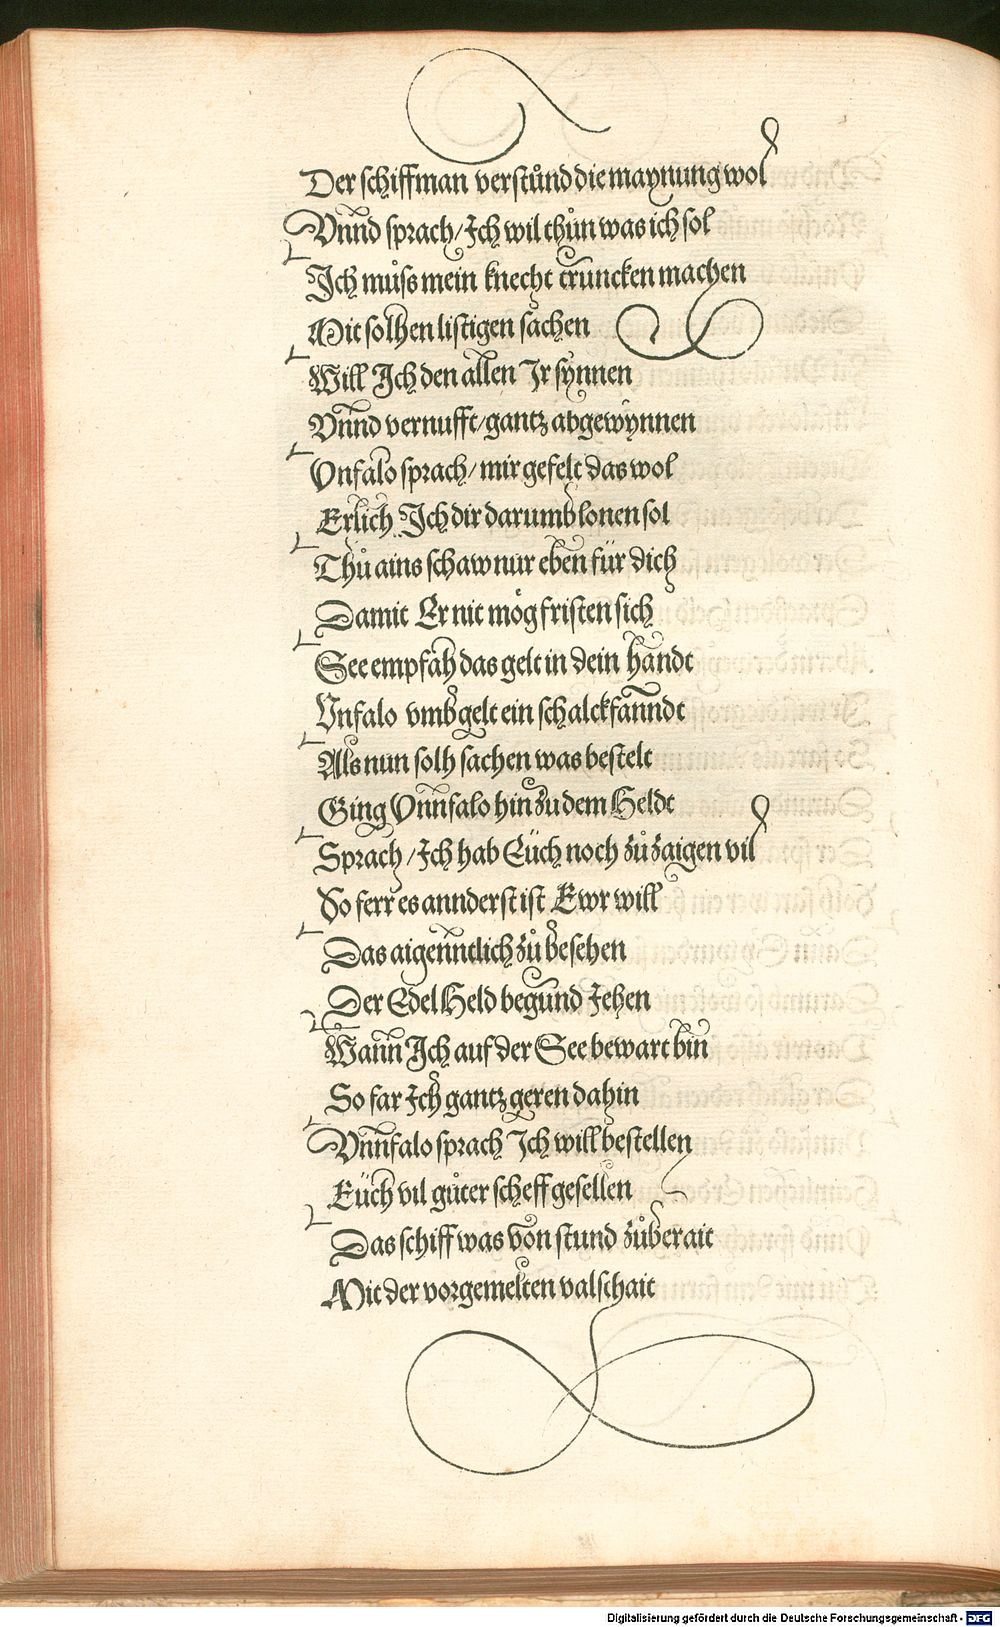 Der schiffman verstůnd die maynung wol
Vnnd sprach / Ich wil thůn was ich sol
Ich můss mein knecht truncken machen
Mit solhen listigen sachen
Will Ich den allen Ir synnen
Vnnd vernufft / gantz abgewynnen
Vnfalo sprach / mir gefelt das wol
Erlich Ich dir darumb lonen sol
Thů ains schaw nur eben für dich
Damit Er nit mög fristen sich
See empfäh das gelt in dein handt
Vnfalo vmb gelt ein schalck fanndt
Als nun solh sachen was bestelt
Ging Vnnfalo hin zu dem Heldt
Sprach / Ich hab Eüch noch zů zaigen vil
So ferr es annderst ist Ewr will
Das aigenntlich zů besehen
Der Edel Held begund Jehen
Wann Ich auf der See bewart bin
So far Ich gantz geren dahin
Vnnfalo sprach Ich will bestellen
Eüch vil gůter scheff gesellen
Das schiff was von stund zůberait
Mit der vorgemelten valschait
Digitalisierung gefördert durch die Deutsche Forschungsgemeinschaft - DFG